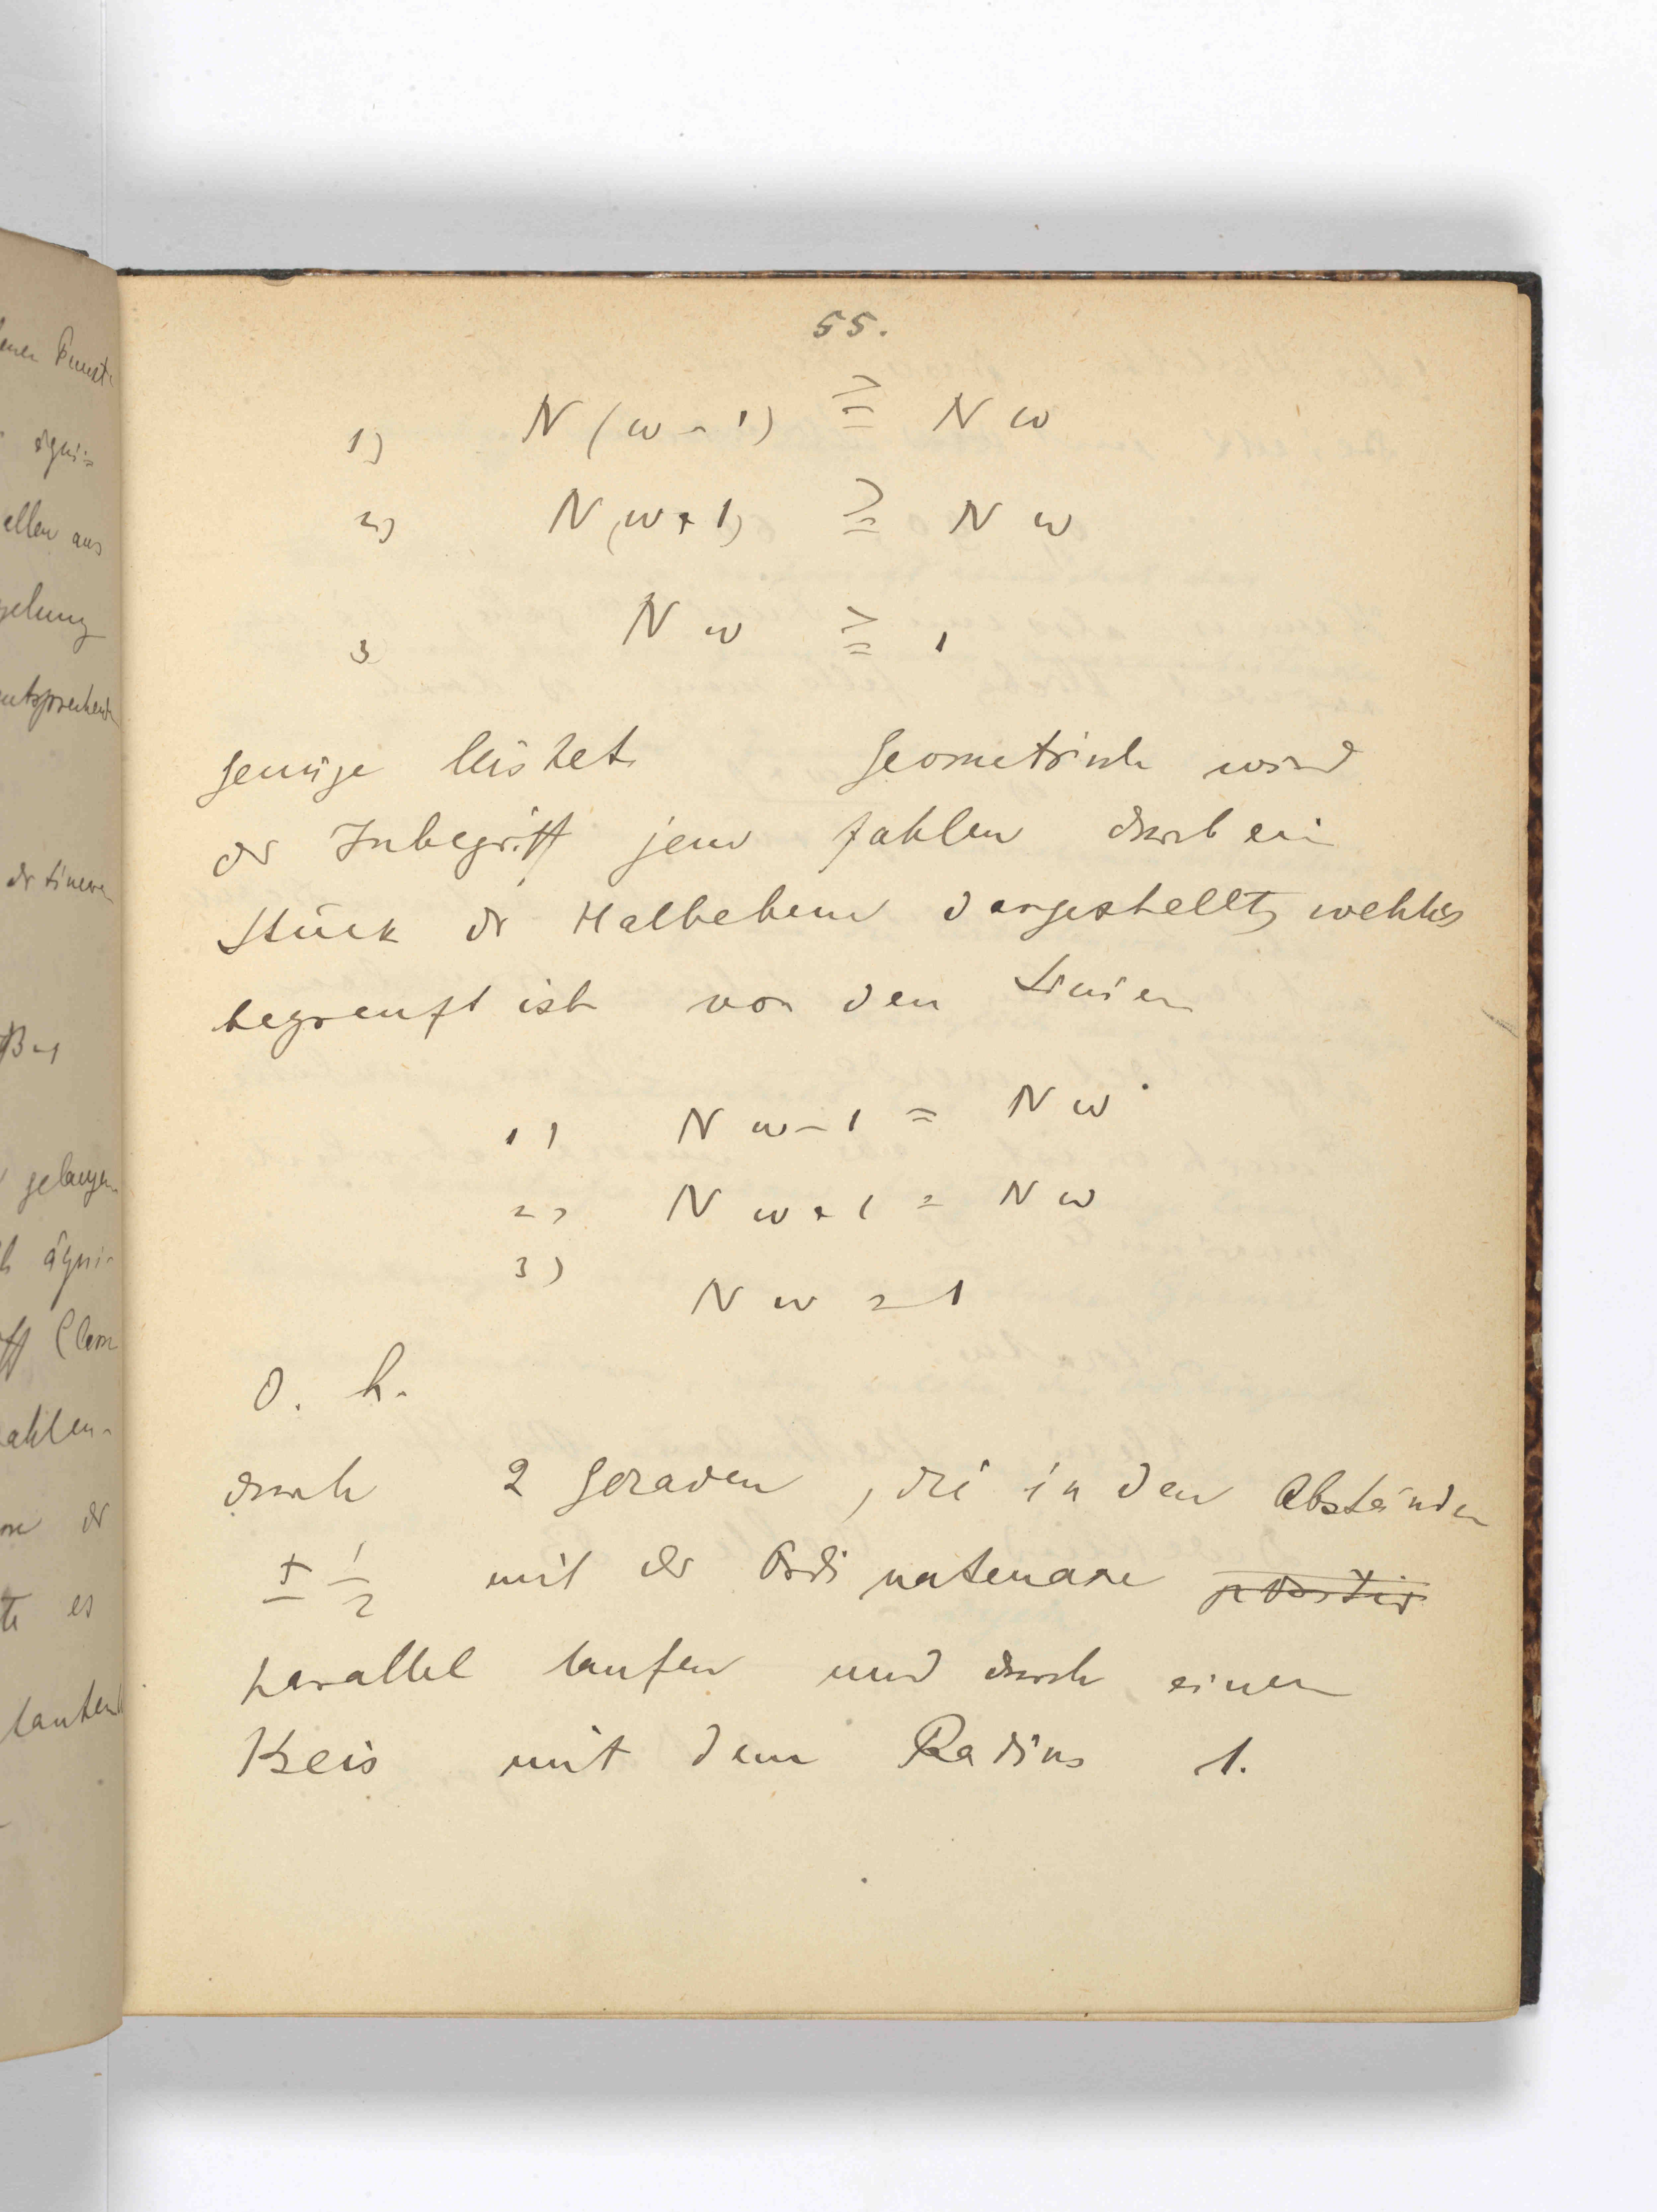 55.
1) N(w-1) ≧ N w
2) N(w+1) ≧ N w
3 N w ≧ 1
genüge leistet. Geometrisch wird
der Inbegriff jener Zahlen durch ein
Stück der Halbebene dargestellt, welches
begrenzt ist von den Linien
1) N w-1 = N w
2) N w+1 = N w
3) N w = 1
d. h.
durch 2 Geraden, die in den Abständen
± 1/2 mit der Ordinatenaxe
parallel laufen und durch einen
Kreis mit dem Radius 1.
enen Punkt
äqui=
ellen aus
entsprechend
gelangen
äqui-
ahlen-
der
te es